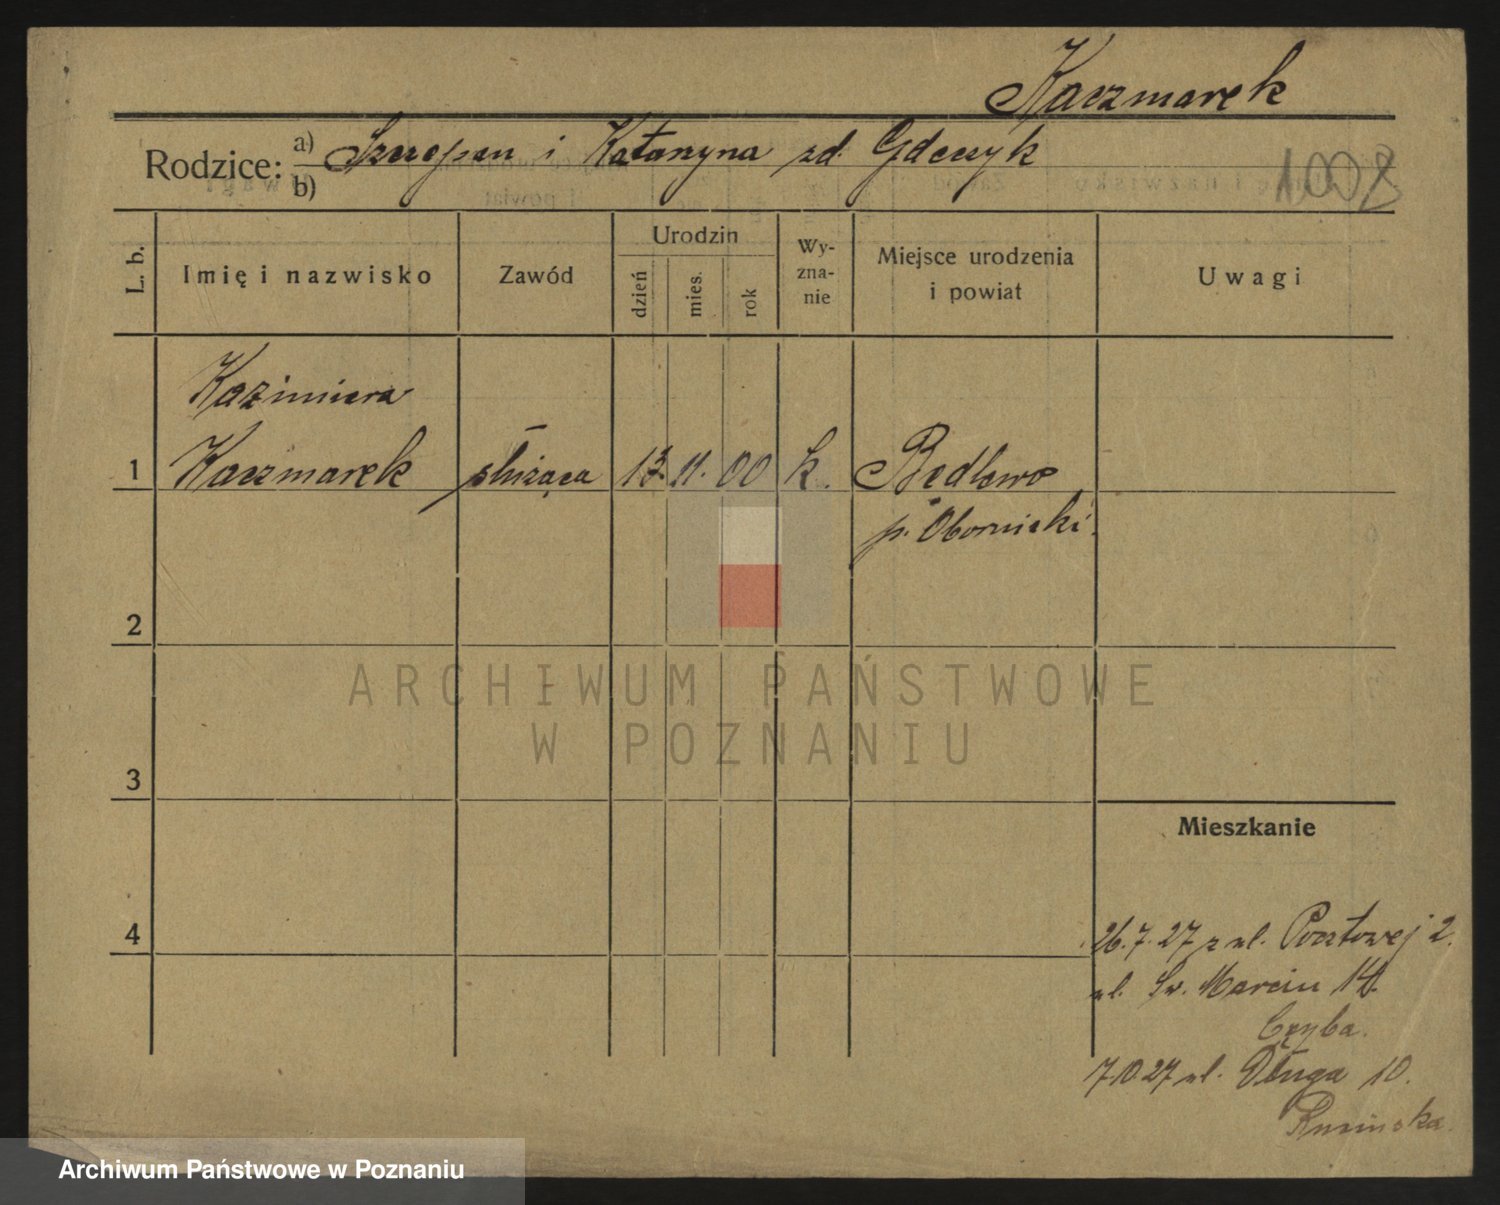 Kaczmarek
Rodzice: a) Szczepan i Katarzyna zd. Gdeczyk
b)
1008
L. b.
Imię i nazwisko
Zawód
Urodzin
dzień
mies.
rok
Wy-
zna-
nie
Miejsce urodzenia
i powiat
Uwagi
Kazimiera
1 Kaczmarek służąca 13. 11. 00 k. Bedlewo
p. Obornicki.
2
ARCHIWUM PAŃSTWOWE
W POZNANIU
3
Mieszkanie
4
26.7.27 z ul. Pocztowej 2.
ul. Św. Marcin 14.
7.10 27 ul. Długa 10.
Archiwum Państwowe w Poznaniu